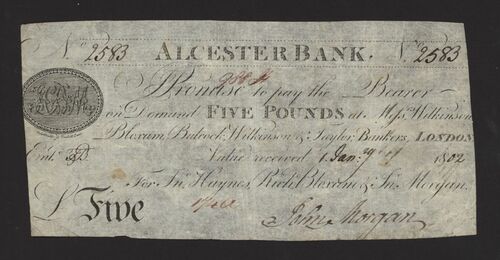 No. 2583 ALCESTER BANK. No. 2583
I Promise to pay the Bearer
on Demand FIVE POUNDS at Messrs Wilkinson
Bloxam, Wilkinson & Taylor, Bankers, LONDON
Value received 1 Jany 1802
For Jno. Haynes, Richd. Bloxam & Jno. Morgan.
£ Five
John Morgan